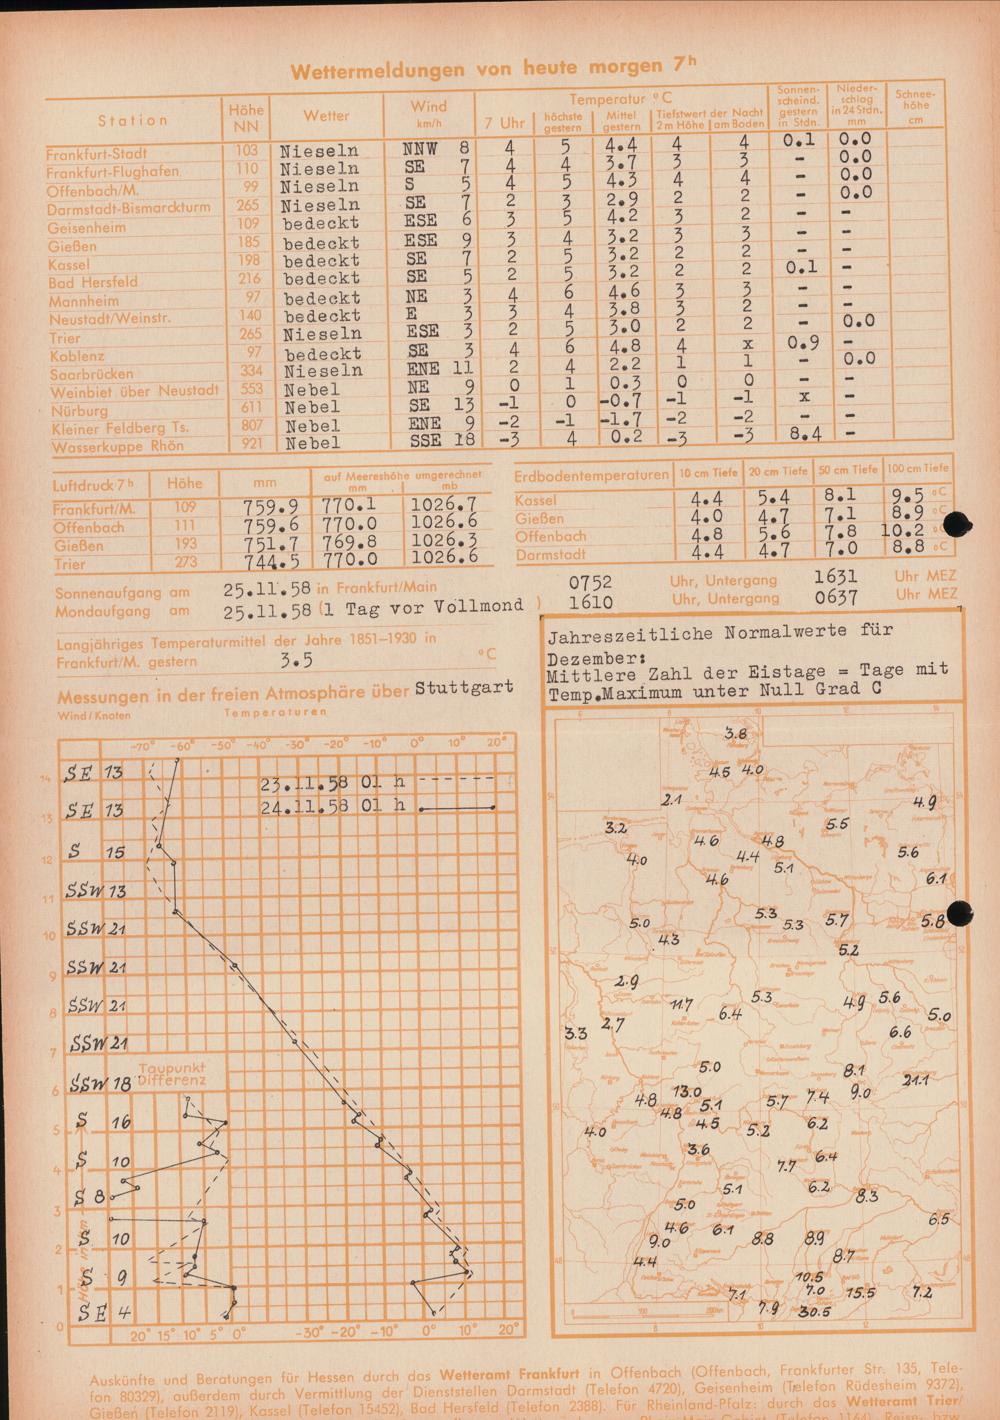 Wettermeldungen von heute morgen 7ʰ
Station Höhe NN Wetter Wind km/h Temperatur °C Sonnenscheind. gestern in Stdn. Niederschlag in 24 Stdn. mm Schneehöhe cm
7 Uhr höchste gestern Mittel gestern Tiefstwert der Nacht 2m Höhe am Boden
Frankfurt-Stadt 103 Nieseln NNW 8 4 5 4.4 4 4 0.1 0.0
Frankfurt-Flughafen 110 Nieseln SE 7 4 4 3.7 3 3 - 0.0
Offenbach/M. 99 Nieseln S 5 4 5 4.3 4 4 - 0.0
Darmstadt-Bismarckturm 265 Nieseln SE 7 2 3 2.9 2 2 - 0.0
Geisenheim 109 bedeckt ESE 6 3 5 4.2 3 2 - -
Gießen 185 bedeckt ESE 9 3 4 3.2 3 3 - -
Kassel 198 bedeckt SE 7 2 5 3.2 2 2 - -
Bad Hersfeld 216 bedeckt SE 5 2 5 3.2 2 2 0.1 -
Mannheim 97 bedeckt NE 3 4 6 4.6 3 3 - -
Neustadt/Weinstr. 140 bedeckt E 3 3 4 3.8 3 2 - -
Trier 265 Nieseln ESE 3 2 5 3.0 2 2 - 0.0
Koblenz 97 bedeckt SE 3 4 6 4.8 4 x 0.9 -
Saarbrücken 334 Nieseln ENE 11 2 4 2.2 1 1 - 0.0
Weinbiet über Neustadt 553 Nebel NE 9 0 1 0.3 0 0 - -
Nürburg 611 Nebel SE 13 -1 0 -0.7 -1 -1 x -
Kleiner Feldberg Ts. 807 Nebel ENE 9 -2 -1 -1.7 -2 -2 - -
Wasserkuppe Rhön 921 Nebel SSE 18 -3 4 0.2 -3 -3 8.4 -
Luftdruck 7ʰ Höhe mm auf Meereshöhe umgerechnet mm mb
Frankfurt/M. 109 759.9 770.1 1026.7
Offenbach 111 759.6 770.0 1026.6
Gießen 193 751.7 769.8 1026.3
Trier 273 744.5 770.0 1026.6
Erdbodentemperaturen 10 cm Tiefe 20 cm Tiefe 50 cm Tiefe 100 cm Tiefe
Kassel 4.4 5.4 8.1 9.5 °C
Gießen 4.0 4.7 7.1 8.9 °C
Offenbach 4.8 5.6 7.8 10.2 °C
Darmstadt 4.4 4.7 7.0 8.8 °C
Sonnenaufgang am 25.11.58 in Frankfurt/Main 0752 Uhr, Untergang 1631 Uhr MEZ
Mondaufgang am 25.11.58 (1 Tag vor Vollmond ) 1610 Uhr, Untergang 0637 Uhr MEZ
Langjähriges Temperaturmittel der Jahre 1851–1930 in
Frankfurt/M. gestern 3.5 °C
Messungen in der freien Atmosphäre über Stuttgart
Wind/Knoten Temperaturen
-70° -60° -50° -40° -30° -20° -10° 0° 10° 20°
23.11.58 01 h
24.11.58 01 h
14 SE 13
13 SE 13
12 S 15
11 SSW 13
10 SSW 21
9 SSW 21
8 SSW 21
7 SSW 21
6 SSW 18
Taupunkt
Differenz
5 S 16
4 S 10
3 S 8
2 S 10
1 S 9
0 SE 4
Höhe in km
20° 15° 10° 5° 0° -30° -20° -10° 0° 10° 20°
Jahreszeitliche Normalwerte für
Dezember:
Mittlere Zahl der Eistage = Tage mit
Temp.Maximum unter Null Grad C
3.8
4.5 4.0
2.1 4.9
3.2 4.6 4.8 5.5
4.0 4.4 5.1 5.6
4.6 6.1
5.0 5.3 5.3 5.7 5.8
4.3 5.2
2.9
11.7 5.3 4.9 5.6
3.3 2.7 6.4 6.6 5.0
5.0 8.1
21.1
4.8 13.0 5.1 5.7 7.4 9.0
4.8
4.0 4.5 5.2 6.2
3.6 7.7 6.4
5.1 6.2 8.3
5.0 6.5
4.6 6.1
9.0 8.8 8.9
4.4 8.7
10.5
7.1 7.0 15.5 7.2
7.9 30.5
Auskünfte und Beratungen für Hessen durch das Wetteramt Frankfurt in Offenbach (Offenbach, Frankfurter Str. 135, Tele-
fon 80329), außerdem durch Vermittlung der Dienststellen Darmstadt (Telefon 4720), Geisenheim (Telefon Rüdesheim 9372),
Gießen (Telefon 2119), Kassel (Telefon 15452), Bad Hersfeld (Telefon 2388). Für Rheinland-Pfalz: durch das Wetteramt Trier/